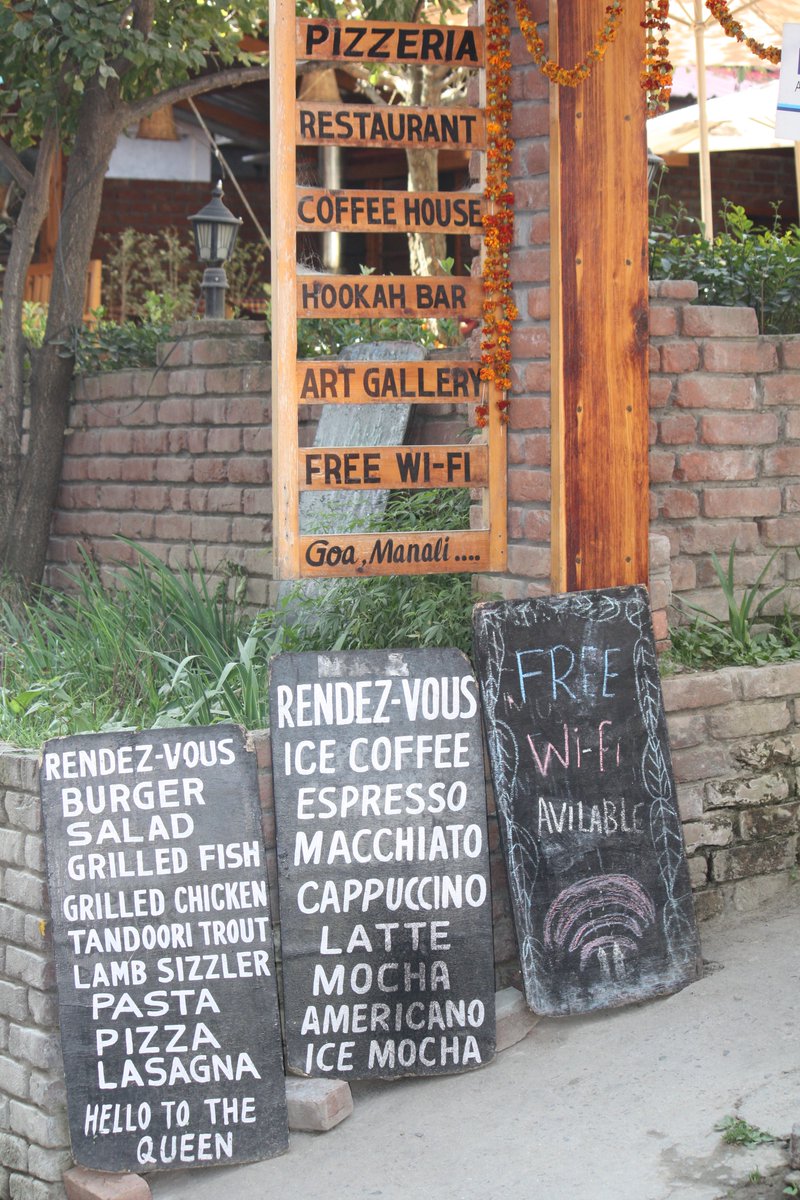 PIZZERIA
RESTAURANT
COFFEE HOUSE
HOOKAH BAR
ART GALLERY
FREE WI-FI
Goa, Manali ....
RENDEZ-VOUS
BURGER
SALAD
GRILLED FISH
GRILLED CHICKEN
TANDOORI TROUT
LAMB SIZZLER
PASTA
PIZZA
LASAGNA
HELLO TO THE
QUEEN
RENDEZ-VOUS
ICE COFFEE
ESPRESSO
MACCHIATO
CAPPUCCINO
LATTE
MOCHA
AMERICANO
ICE MOCHA
FREE
Wi-fi
AVILABLE